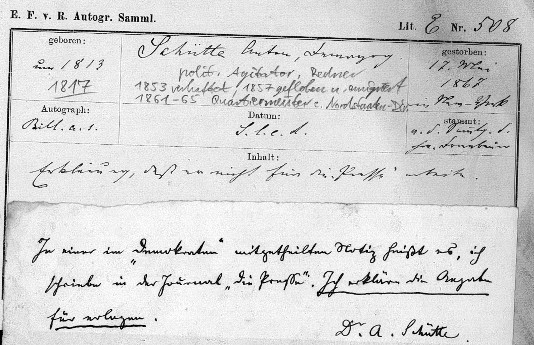 E. F. v. R. Autogr. Samml.
Lit. E Nr. 508
geboren:
um 1813
1817
Schütte Anton, Demagog
polit. Agitator, Redner
1853 verhaftet / 1857 geflohen u. emigriert
1861-65 Quartiermeister
gestorben:
17. Mai
1867
in New-York
Autograph:
Bill. a. s.
Datum:
S. l. e. d.
stammt:
a. d. Smlg. d.
Inhalt:
Erklärung, daß er nicht für die "Presse" arbeite.
In einer im „Demokraten" mitgetheilten Notiz heißt es, ich
schriebe in der Journal „die Presse". Ich erkläre die Angabe
für erlogen.
Dr. A. Schütte.